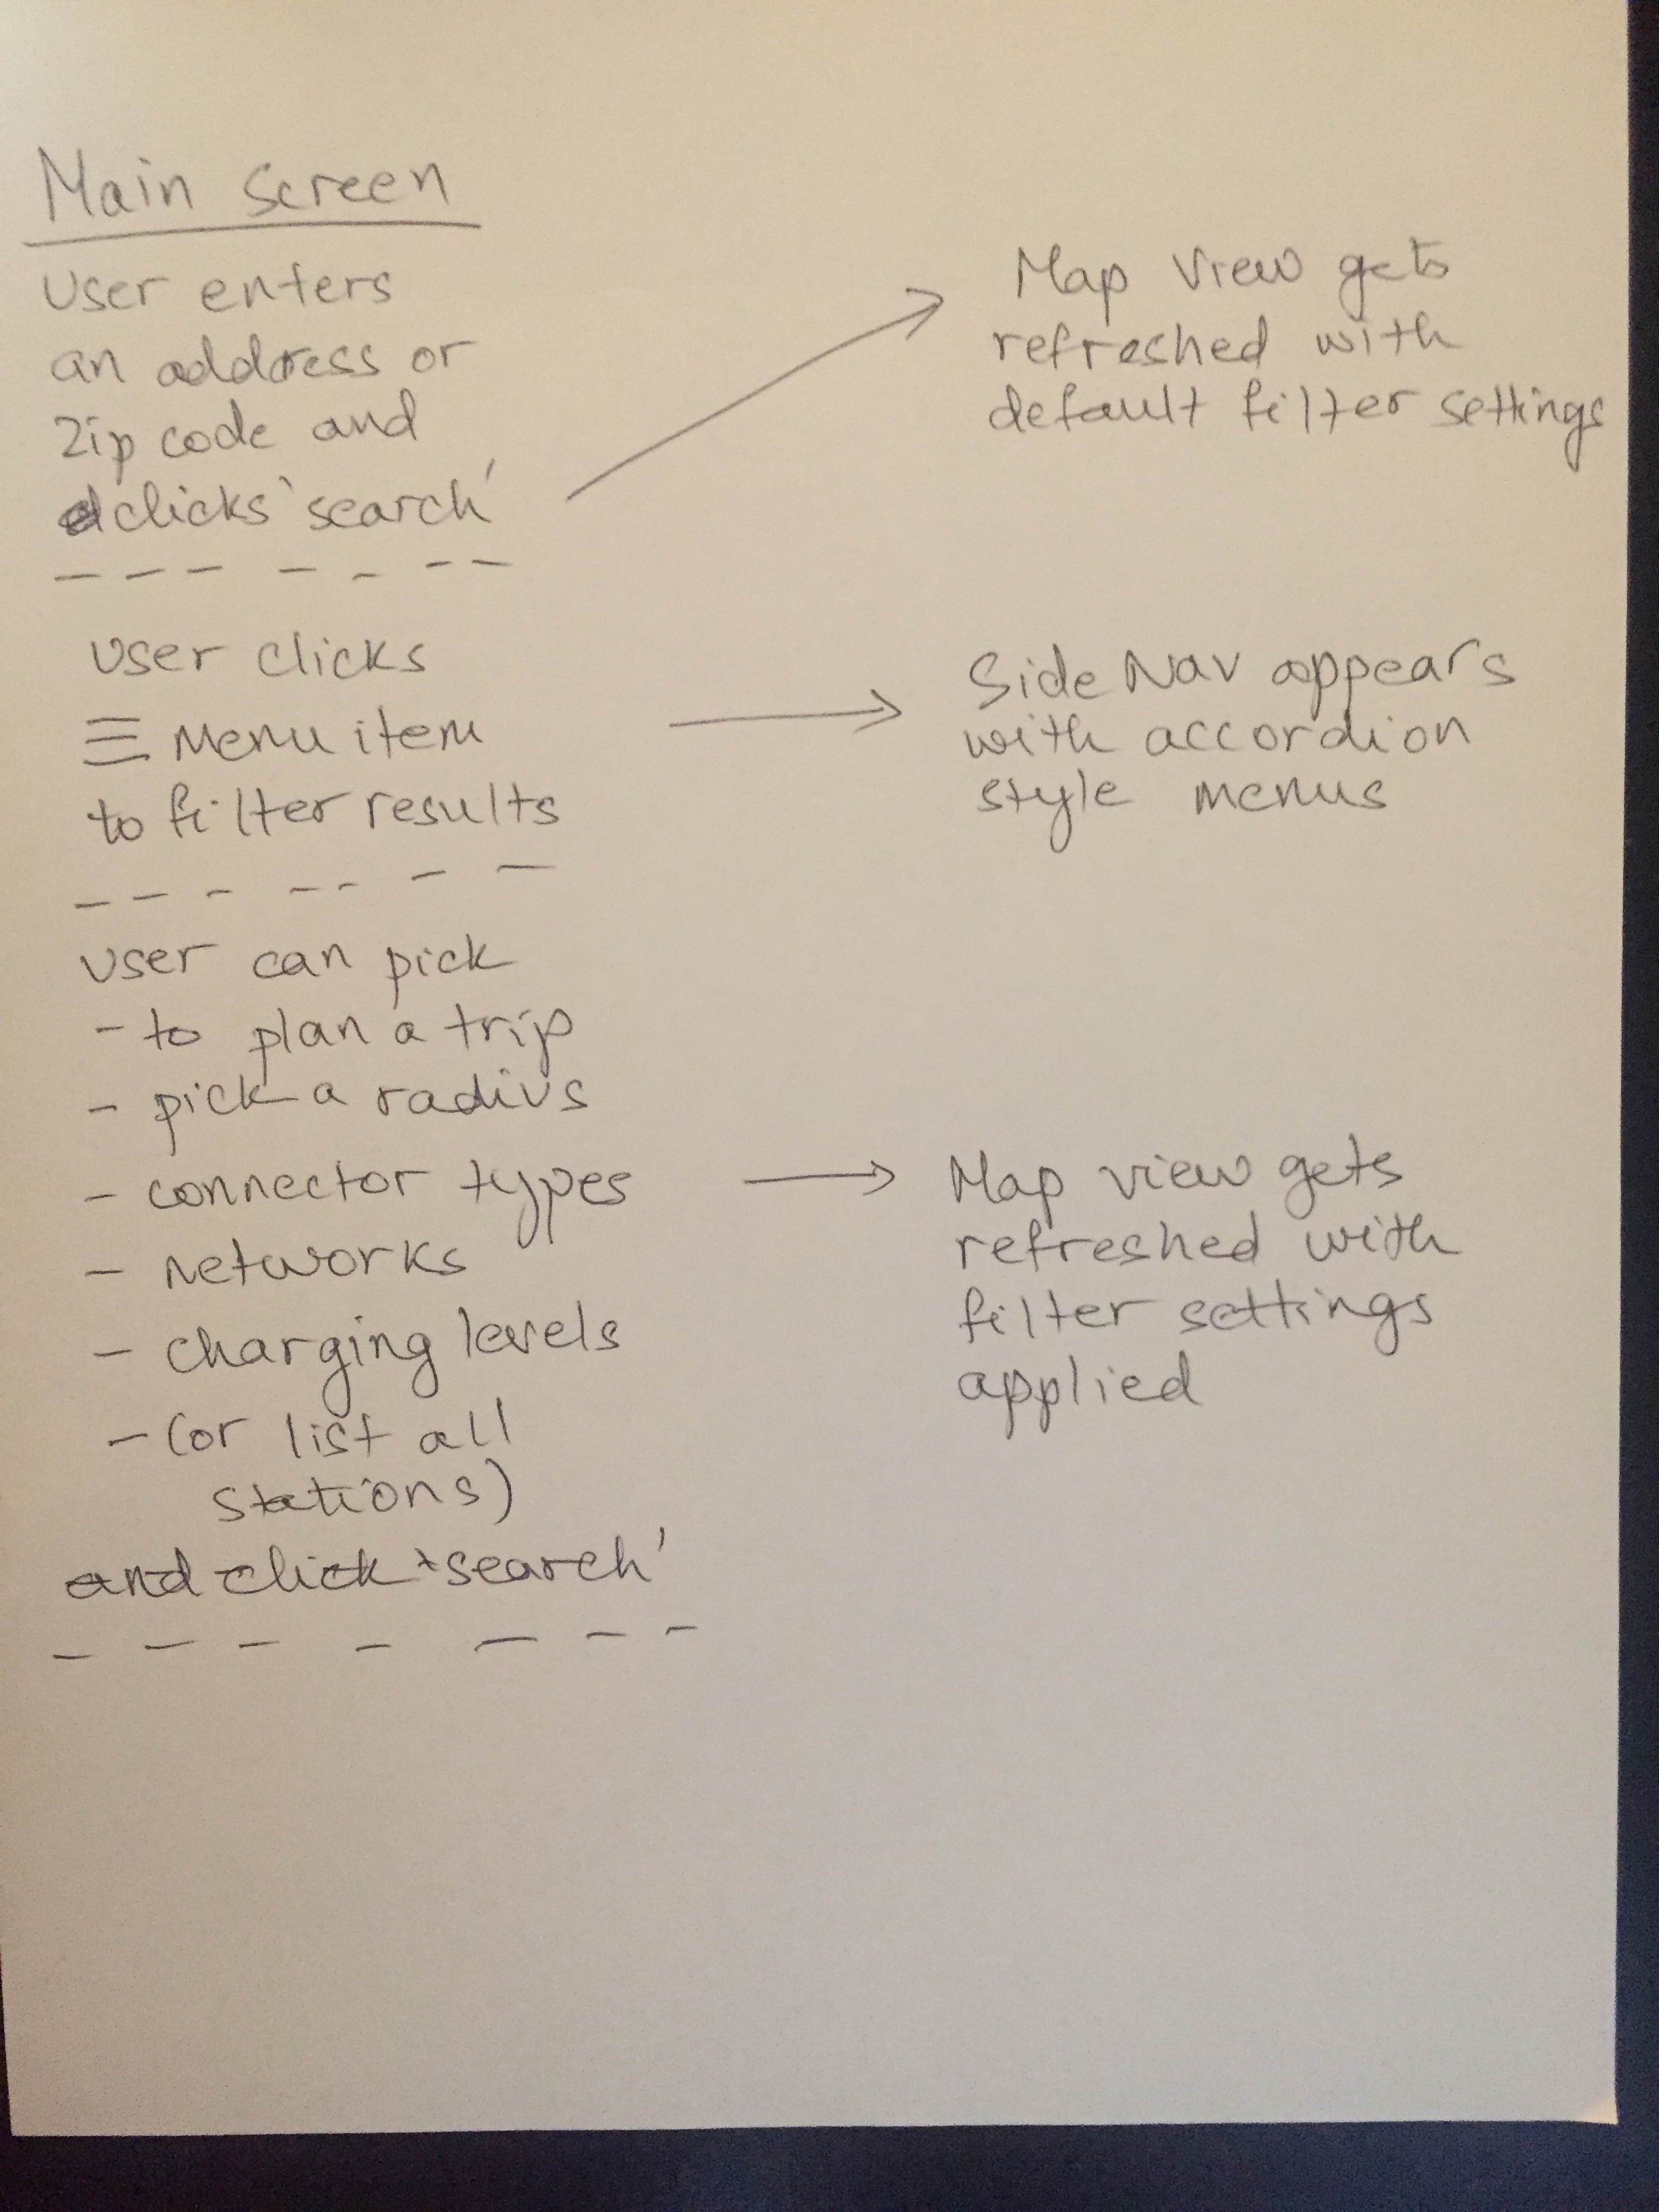 Main screen
User enters
an address or
zip code and
clicks 'search'
Map View gets
refreshed with
default filter settings
User clicks
☰ Menu item
to filter results
Side Nav appears
with accordion
style menus
User can pick
- to plan a trip
- pick a radius
- connector types
- Networks
- charging levels
- (or list all
stations)
and click 'search'
Map view gets
refreshed with
filter settings
applied